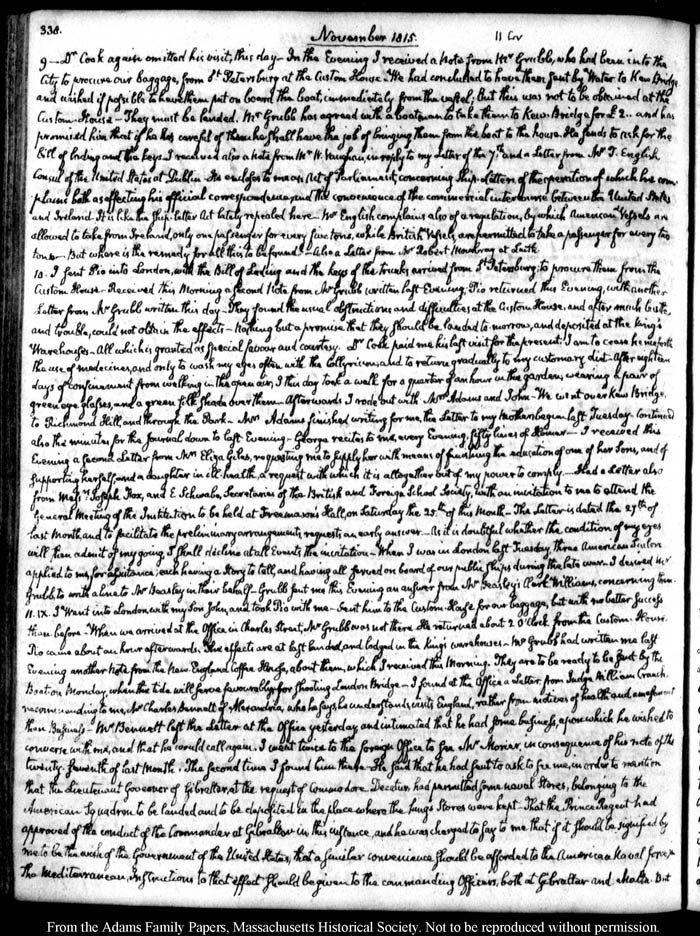 338.
November 1815.
11 Cov
9 — Dr. Cook again omitted his visit, this day — In the Evening I received a Note from Mr Grubb, who had been into the
City to procure our baggage, from St Petersburg at the Custom House — He had concluded to have them sent by Water to Kew Bridge
and wished if possible to have them put on board the boat, immediately from the vessel; but this was not to be obtained at the
Custom-House — They must be landed. Mr Grubb has agreed with a boatman to take them to Kew Bridge for £2.. and has
promised him that if he is careful of them he shall have the job of bringing them from the boat to the house. He sends to ask for the
Bill of lading and the keys. I received also a note from Mr W. Vaughan, in reply to my Letter of the 7th and a Letter from Mr T. English
Consul of the United States at Dublin. He encloses to me an Act of Parliament, concerning Ship-letters, of the operation of which he com-
plains both as affecting his official correspondence, and the convenience of the commercial intercourse between the United States
and Ireland. It is like the Ship-letter Act lately repealed here — Mr English complains also of a regulation, by which American Vessels are
allowed to take from Ireland, only one passenger for every five tons, while British Vessels, are permitted to take a passenger for every two
tons — But where is the remedy for all this to be found? — Also a Letter from Mr Robert Mowbray at Leith.
10. I sent Pio into London, with the Bill of Lading and the keys of the trunks arrived from St Petersburg; to procure them from the
Custom House — Received this Morning a second Note from Mr Grubb written last Evening. Pio returned this Evening, with another
Letter from Mr Grubb written this day — They found the usual obstructions and difficulties at the Custom House, and after much bustle
and trouble, could not obtain the effects — Nothing but a promise that they should be landed to-morrow, and deposited at the King's
Warehouses — All which is granted as special favour and courtesy. Dr Cook paid me his last visit for the present. I am to cease henceforth
the use of medicines, and only to wash my eyes often with the Collyrium, and to return gradually to my customary diet — After eighteen
days of confinement from walking in the open air, I this day took a walk for a quarter of an hour in the garden, wearing a pair of
green eye glasses, and a green silk shade over them — Afterwards I rode out with Mrs Adams and John — We went over Kew Bridge,
to Richmond Hill, and through the Park — Mrs Adams finished writing for me, the Letter to my Mother began last Tuesday. Continued
also the minutes for the Journal down to last Evening — George recites to me, every Evening, fifty lines of Homer — I received this
Evening a second Letter from Mrs Eliza Giles, requesting me to supply her with means of finishing the education of one of her Sons, and of
supporting herself, and a daughter in ill-health, a request with which it is altogether out of my power to comply — Had a Letter also
from Messrs Joseph Fox, and E. Schwabe, Secretaries of the British and Foreign School Society, with an invitation to me to attend the
General Meeting of the Institution to be held at Freemason's Hall, on Saturday the 25th of this Month — The Letter is dated the 27th of
last Month, and to facilitate the preliminary arrangements, requests an early answer — As it is doubtful whether the condition of my eyes
will then admit of my going I shall decline at all Events the invitation — When I was in London last Tuesday three American Sailors
applied to me, for assistance, each having a story to tell, and having all served on board of our public Ships during the late war. I desired Mr
Grubb to write a line to Mr Beasley in their behalf — Grubb sent me this Evening an answer from Mr Beasley's Clerk Williams, concerning them.
11. IX. I went into London, with my Son John, and took Pio with me — Sent him to the Custom-House for our baggage, but with no better success
than before — When we arrived at the Office in Charles Street, Mr Grubb was not there. He returned about 2 O'Clock from the Custom-House.
Pio came about an hour afterwards. The effects are at last landed, and lodged in the King's warehouses — Mr Grubb had written me last
Evening another Note from the New England Coffee House, about them, which I received this Morning. They are to be ready to be sent by the
Boat on Monday, when the tide will serve favourably for shooting London Bridge — I found at the Office a Letter from Judge William Cranch,
recommending to me, Mr Charles Bennett of Alexandria, who he says he understands visits England, rather from motives of health and amusement
than Business — Mr Bennett left the Letter at the Office yesterday, and intimated that he had some business, upon which he wished to
converse with me, and that he would call again. I went twice to the foreign Office to see Mr Morier, in consequence of his note of the
twenty-seventh of last Month. The second time I found him there — He said that he had sent to ask to see me, in order to mention
that the Lieutenant Governor of Gibraltar, at the request of Commodore Decatur, had permitted some naval Stores, belonging to the
American Squadron to be landed and to be deposited in the place where the King's Stores were kept — That the Prince Regent had
approved of the conduct of the Commander at Gibraltar in this instance, and he was charged to say to me that if it should be signified by
me to be the wish of the Government of the United States, that a similar convenience should be afforded to the American Naval force in
the Mediterranean, Instructions to that effect should be given to the commanding Officers, both at Gibraltar and Malta. But
From the Adams Family Papers, Massachusetts Historical Society. Not to be reproduced without permission.